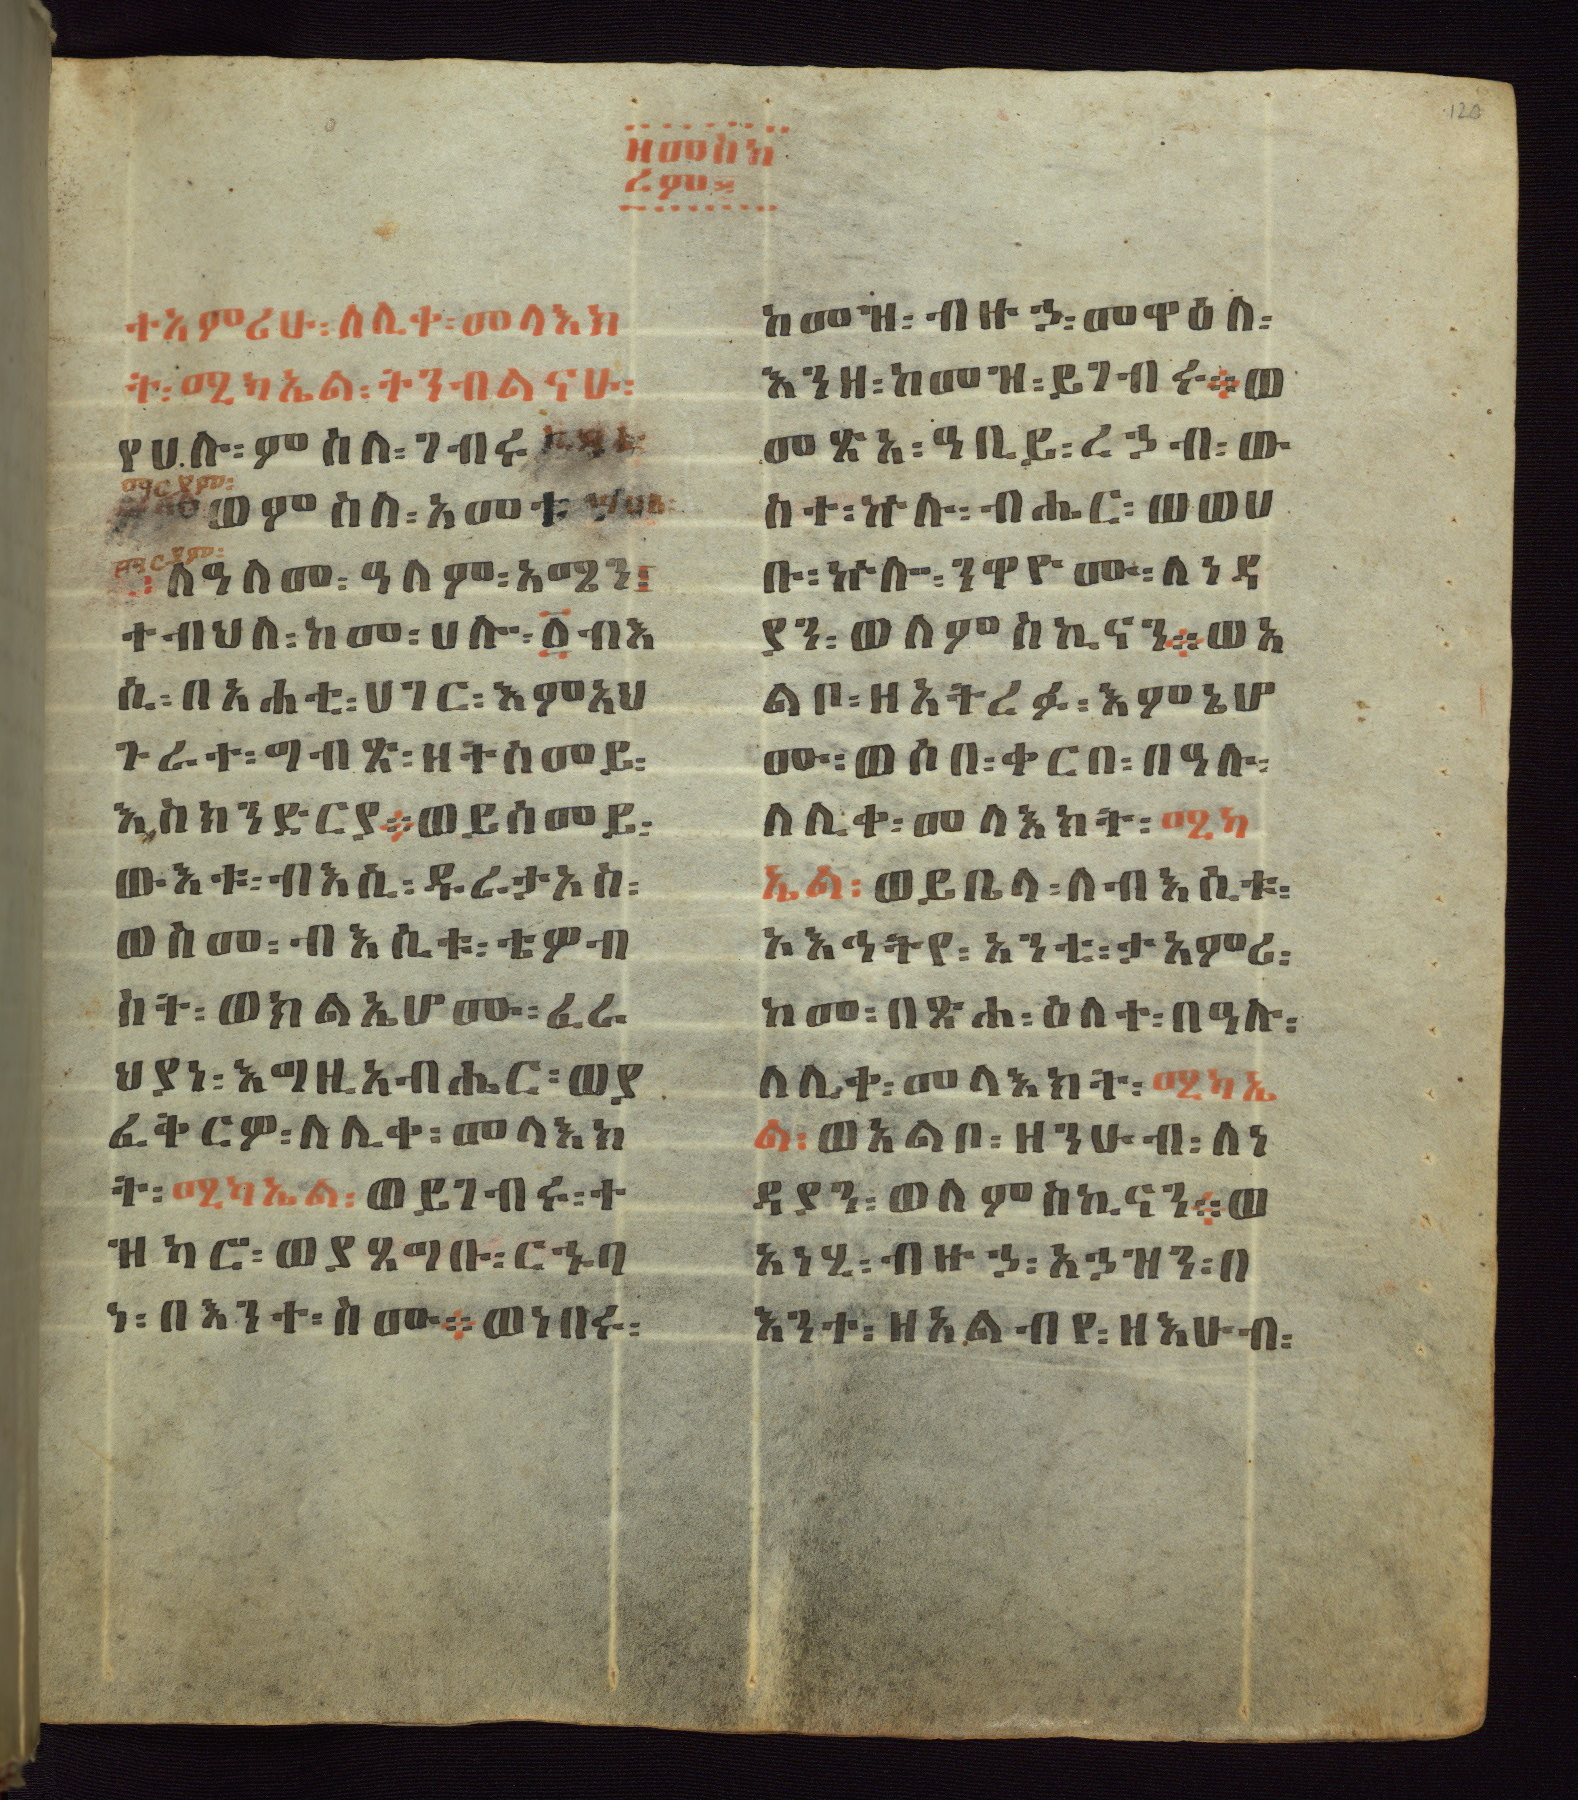 120
ዘመስከ
ረም፡
ተአምሪሁ፡ለሊቀ፡መላእክ
ት፡ሚካኤል፡ትንብልናሁ፡
የሀሉ፡ምስለ፡ገብሩ
ማርያም፡
ወምስለ፡አመቱ፡
ማርያም፡
ለዓለመ፡ዓለም፡አሜን፡
ተብህለ፡ከመ፡ሀሎ፡፩ብእ
ሲ፡በአሐቲ፡ሀገር፡እምአህ
ጉራተ፡ግብጽ፡ዘትሰመይ፡
እስክንድርያ፨ወይሰመይ፡
ውእቱ፡ብእሲ፡ዱራታእስ፡
ወስመ፡ብእሲቱ፡ቴዎብ
ስት፡ወክልኤሆሙ፡ፈራ
ህያነ፡እግዚአብሔር፡ወያ
ፈቅርዎ፡ለሊቀ፡መላእክ
ት፡ሚካኤል፡ወይገብሩ፡ተ
ዝካሮ፡ወያዔግቡ፡ርኁባ
ነ፡በእንተ፡ስሙ፨ወነበሩ፡
ከመዝ፡ብዙኃ፡መዋዕለ፡
እንዘ፡ከመዝ፡ይገብሩ፨ወ
መጽአ፡ዓቢይ፡ረኃብ፡ው
ስተ፡ኵሉ፡ብሔር፡ወወሀ
ቡ፡ኵሎ፡ንዋዮሙ፡ለነዳ
ያን፡ወለምስኪናን፨ወአ
ልቦ፡ዘአትረፉ፡እምኔሆ
ሙ፡ወሶበ፡ቀርበ፡በዓሉ፡
ለሊቀ፡መላእክት፡ሚካ
ኤል፡ወይቤላ፡ለብእሲቱ፡
አእኅትየ፡አንቲ፡ታአምሪ፡
ከመ፡በጽሐ፡ዕለተ፡በዓሉ፡
ለሊቀ፡መላእክት፡ሚካኤ
ል፡ወአልቦ፡ዘንሁብ፡ለነ
ዳያን፡ወለምስኪናን፨ወ
አነሂ፡ብዙኃ፡አኃዝን፡በ
እንተ፡ዘአልብየ፡ዘእሁብ፡